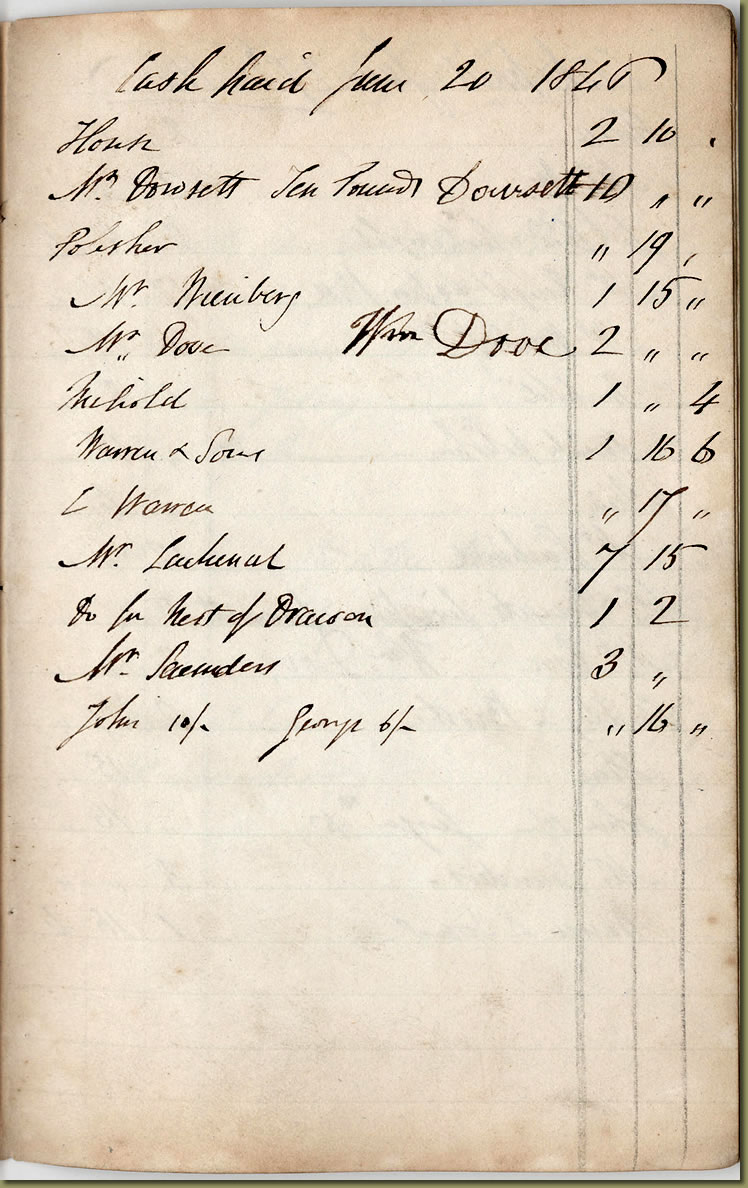 Cash paid June 20 1846
House 2 10 .
Mr. Dowsett Ten Pounds Dowsett 10 „ „
Polisher „ 19 ,
Mr. Weinberg 1 15 „
Mr. Dove Wm Dove 2 „ „
1 „ 4
Warren & Sons 1 16 6
C Warren „ 17 „
Mr. Lachenal 7 15
Do for Nest of Drawers 1 2
Mr. Saunders 3 „
John 10/- George 6/- „ 16 „